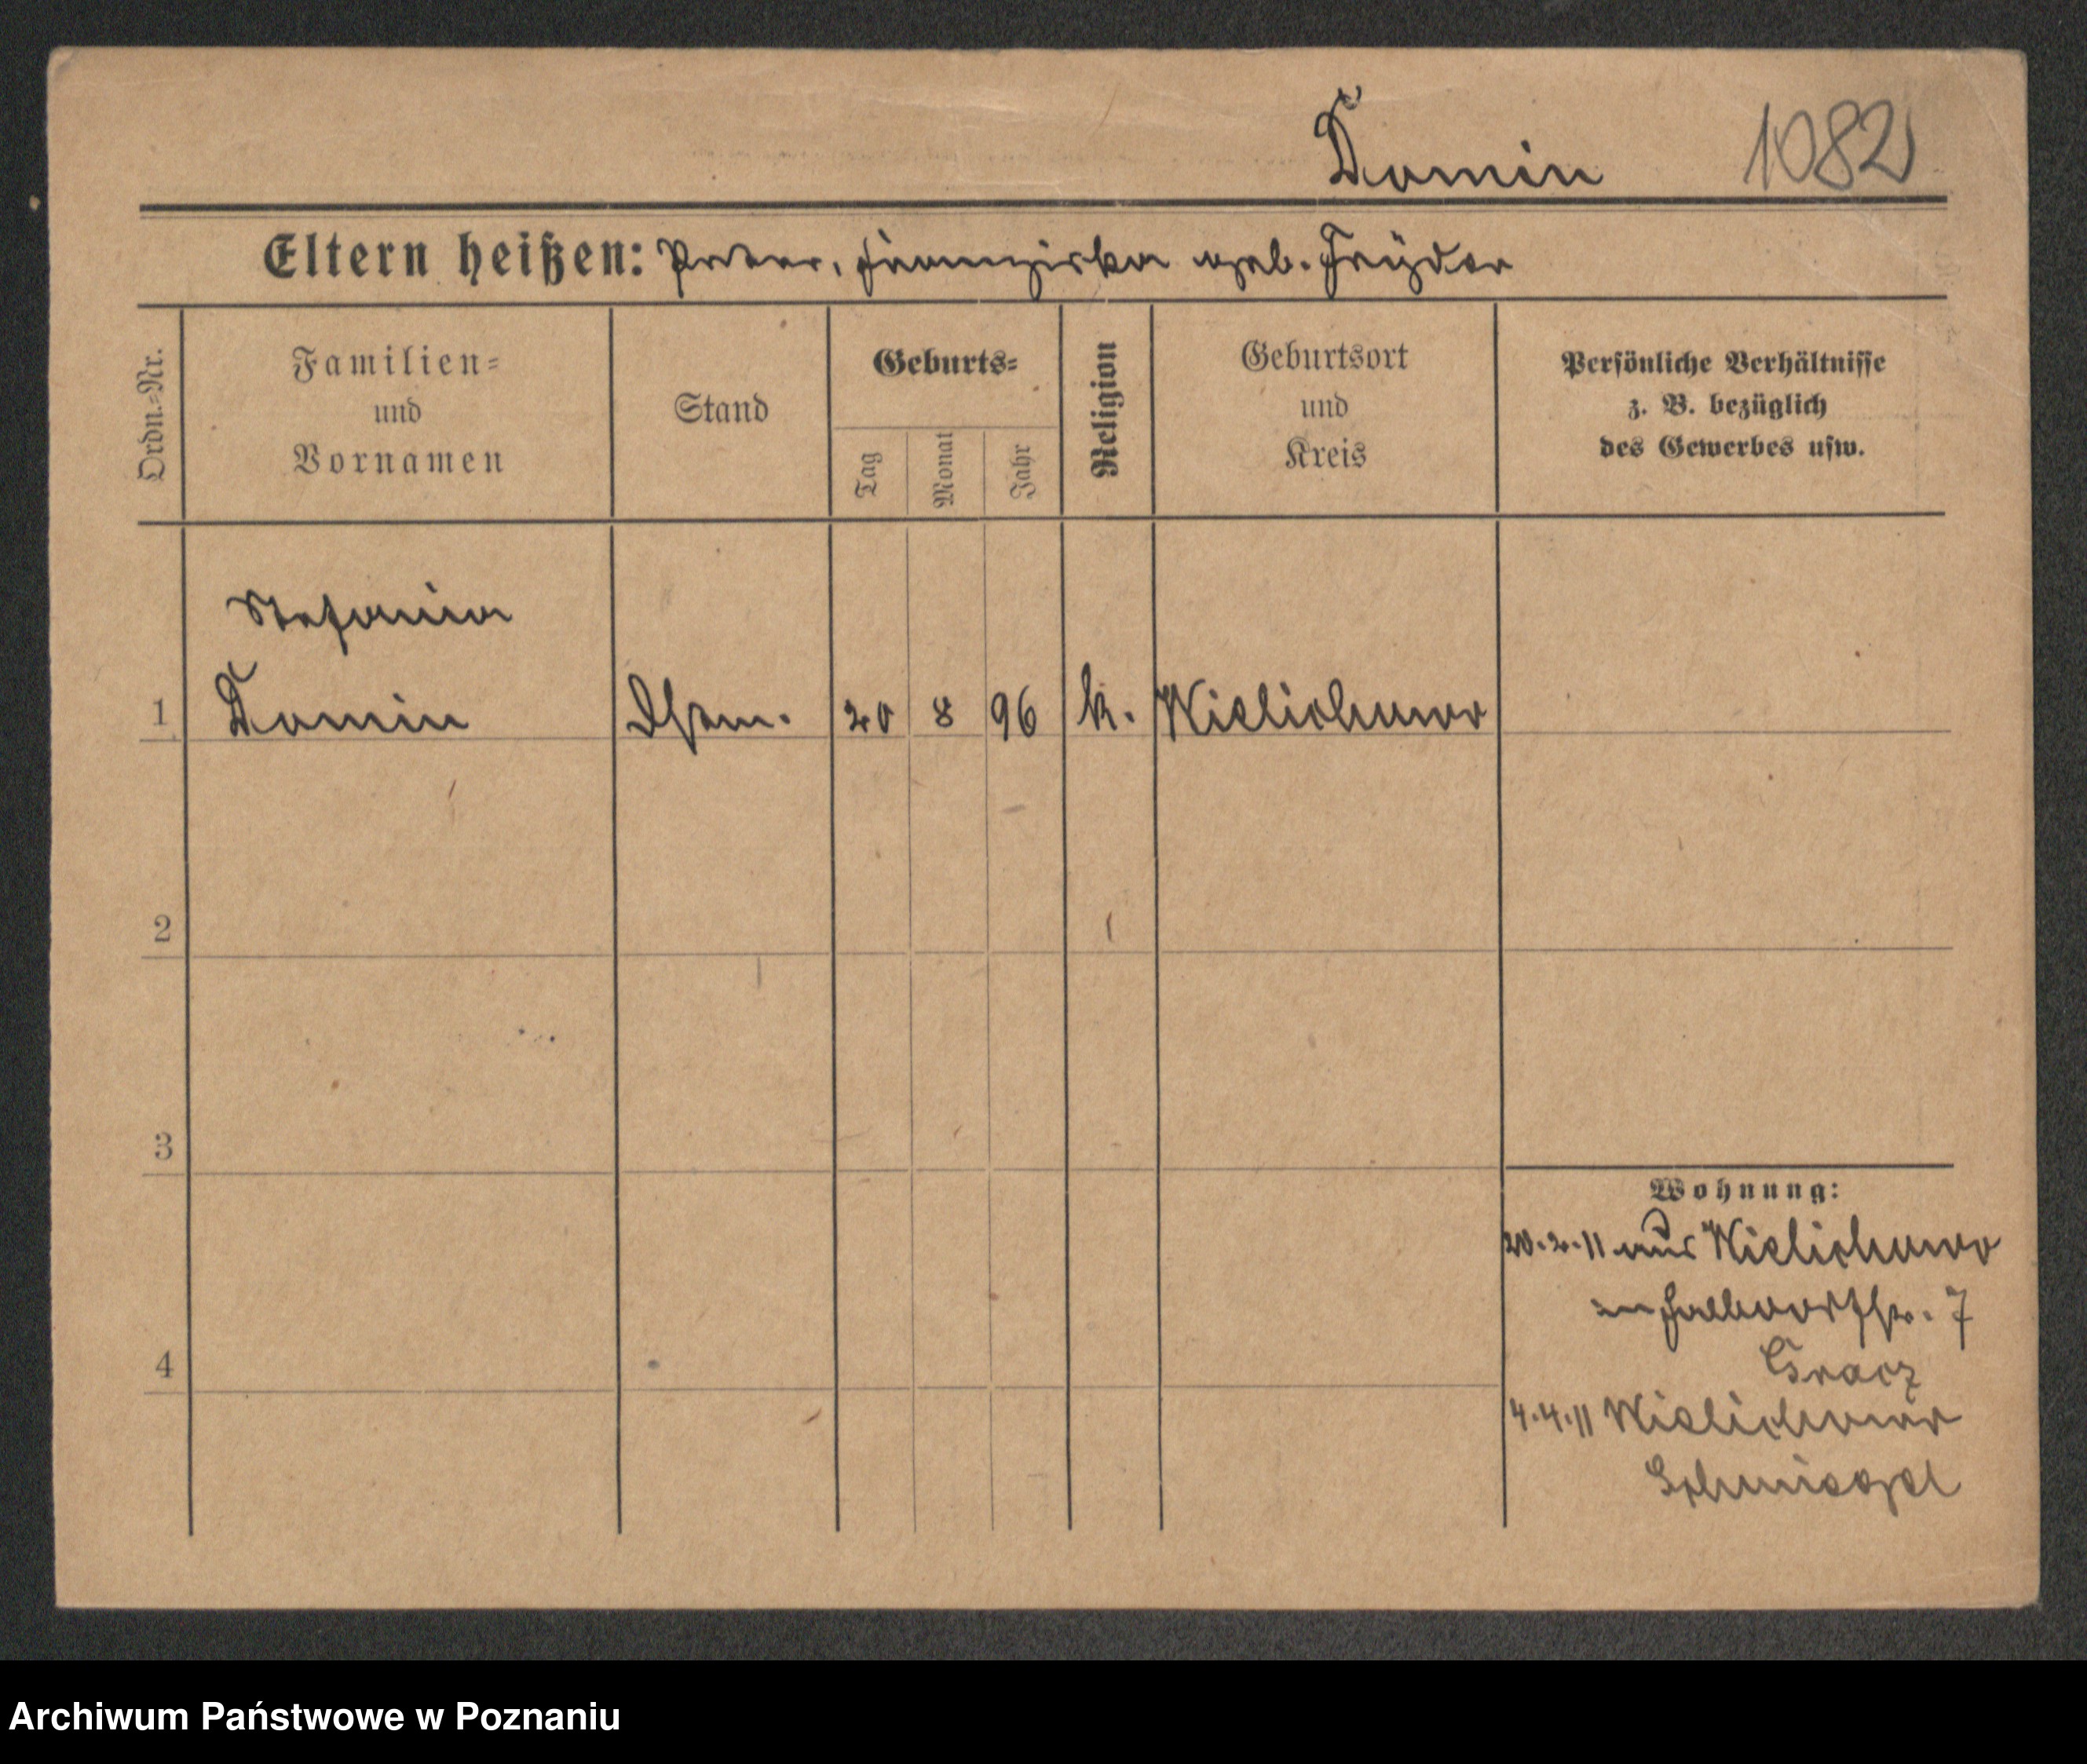 Domin 1082
Eltern heißen: Peter, Franziska geb. Frÿder
Ordn.=Nr.
Familien=
und
Vornamen
Stand
Geburts=
Tag
Monat
Jahr
Religion
Geburtsort
und
Kreis
Persönliche Verhältnisse
z. B. bezüglich
des Gewerbes usw.
Stefania
1 Domin 20 8 96 k. Wielichowo
2
3
4
Wohnung:
20.2.11 aus Wielichowo
7
Gracz
4.4.11 Wielichowo
Schmiegel
Archiwum Państwowe w Poznaniu